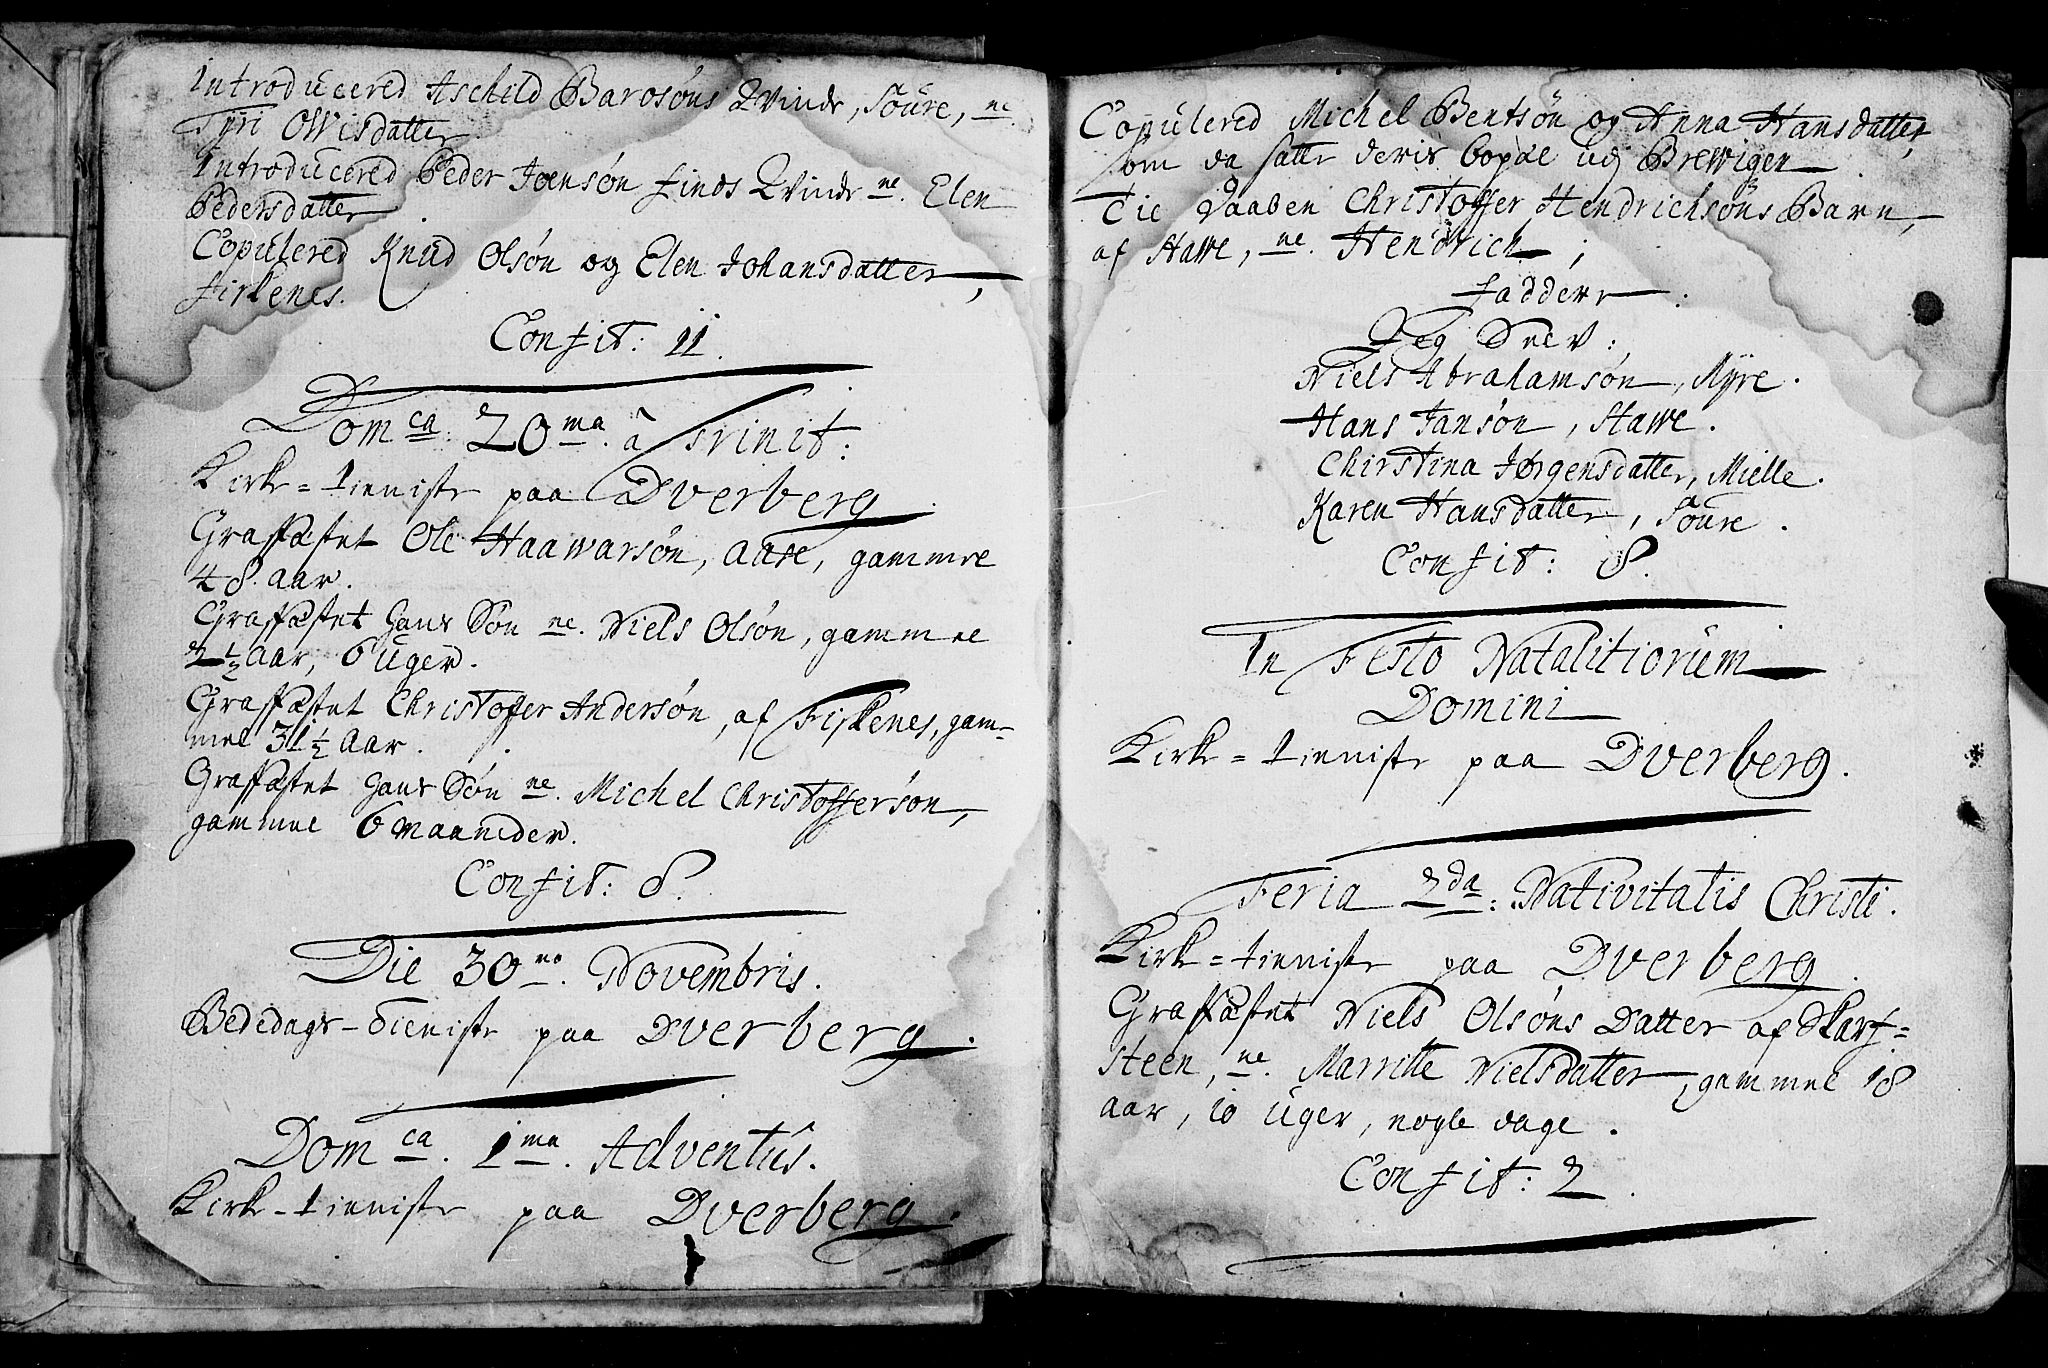 Introducered Aschild Barosøns Qvinde, Soure, ne.
Tyri OWisdatter
Introducered Peder Joensøn Finds Qvinde ne. Elen
Pedersdatter.
Copulered Knud Olsøn og Elen Johansdatter,
Firkenes.
Confit: 11.
Domca. 20ma. à Trinit:
Kirke=tieniste paa Dverberg.
Graffæstet Ole Haawarsøn, Aase, gammel
48. aar.
Graffæstet hans Søn ne. Niels Olsøn, gammel
2½ Aar, 6 Uger.
Graffæstet Christoffer Andersøn, af Fiskenes, gam=
mel 31½ Aar.
Graffæstet hans Søn ne. Michel Christoffersøn,
gammel 6 Maaneder.
Confit: 8.
Die 30no. Novembris.
Bededags-Tieniste paa Dverberg.
Domca. 1ma. Adventus.
Kirke-tieniste paa Dverberg.
Copulered Michel Bentsøn og Anna Hansdatter,
som da satte deris bopæl udj BreWigen.
Til Daaben Christoffer Hendrichsøns Barn,
af StaWe, ne. Hendrich;
Faddere:
Jeg Selv;
Niels Abrahamsøn, Myre.
Hans Jansøn, StaWe.
Chirstina Jørgensdatter, Mielle.
Karen Hansdatter, Soure.
Confit: 8.
In Festo Natalitiorum
Domini
Kirke=tieniste paa Dverberg.
Feria 2da: Nativitatis Christi.
Kirke=tieniste paa Dverberg.
Graffæstet Niels Olsøns Datter af Skarf=
steen, ne. Marritte Nielsdatter, gammel 18
aar, 10 Uger, nogle dage.
Confit: 2.